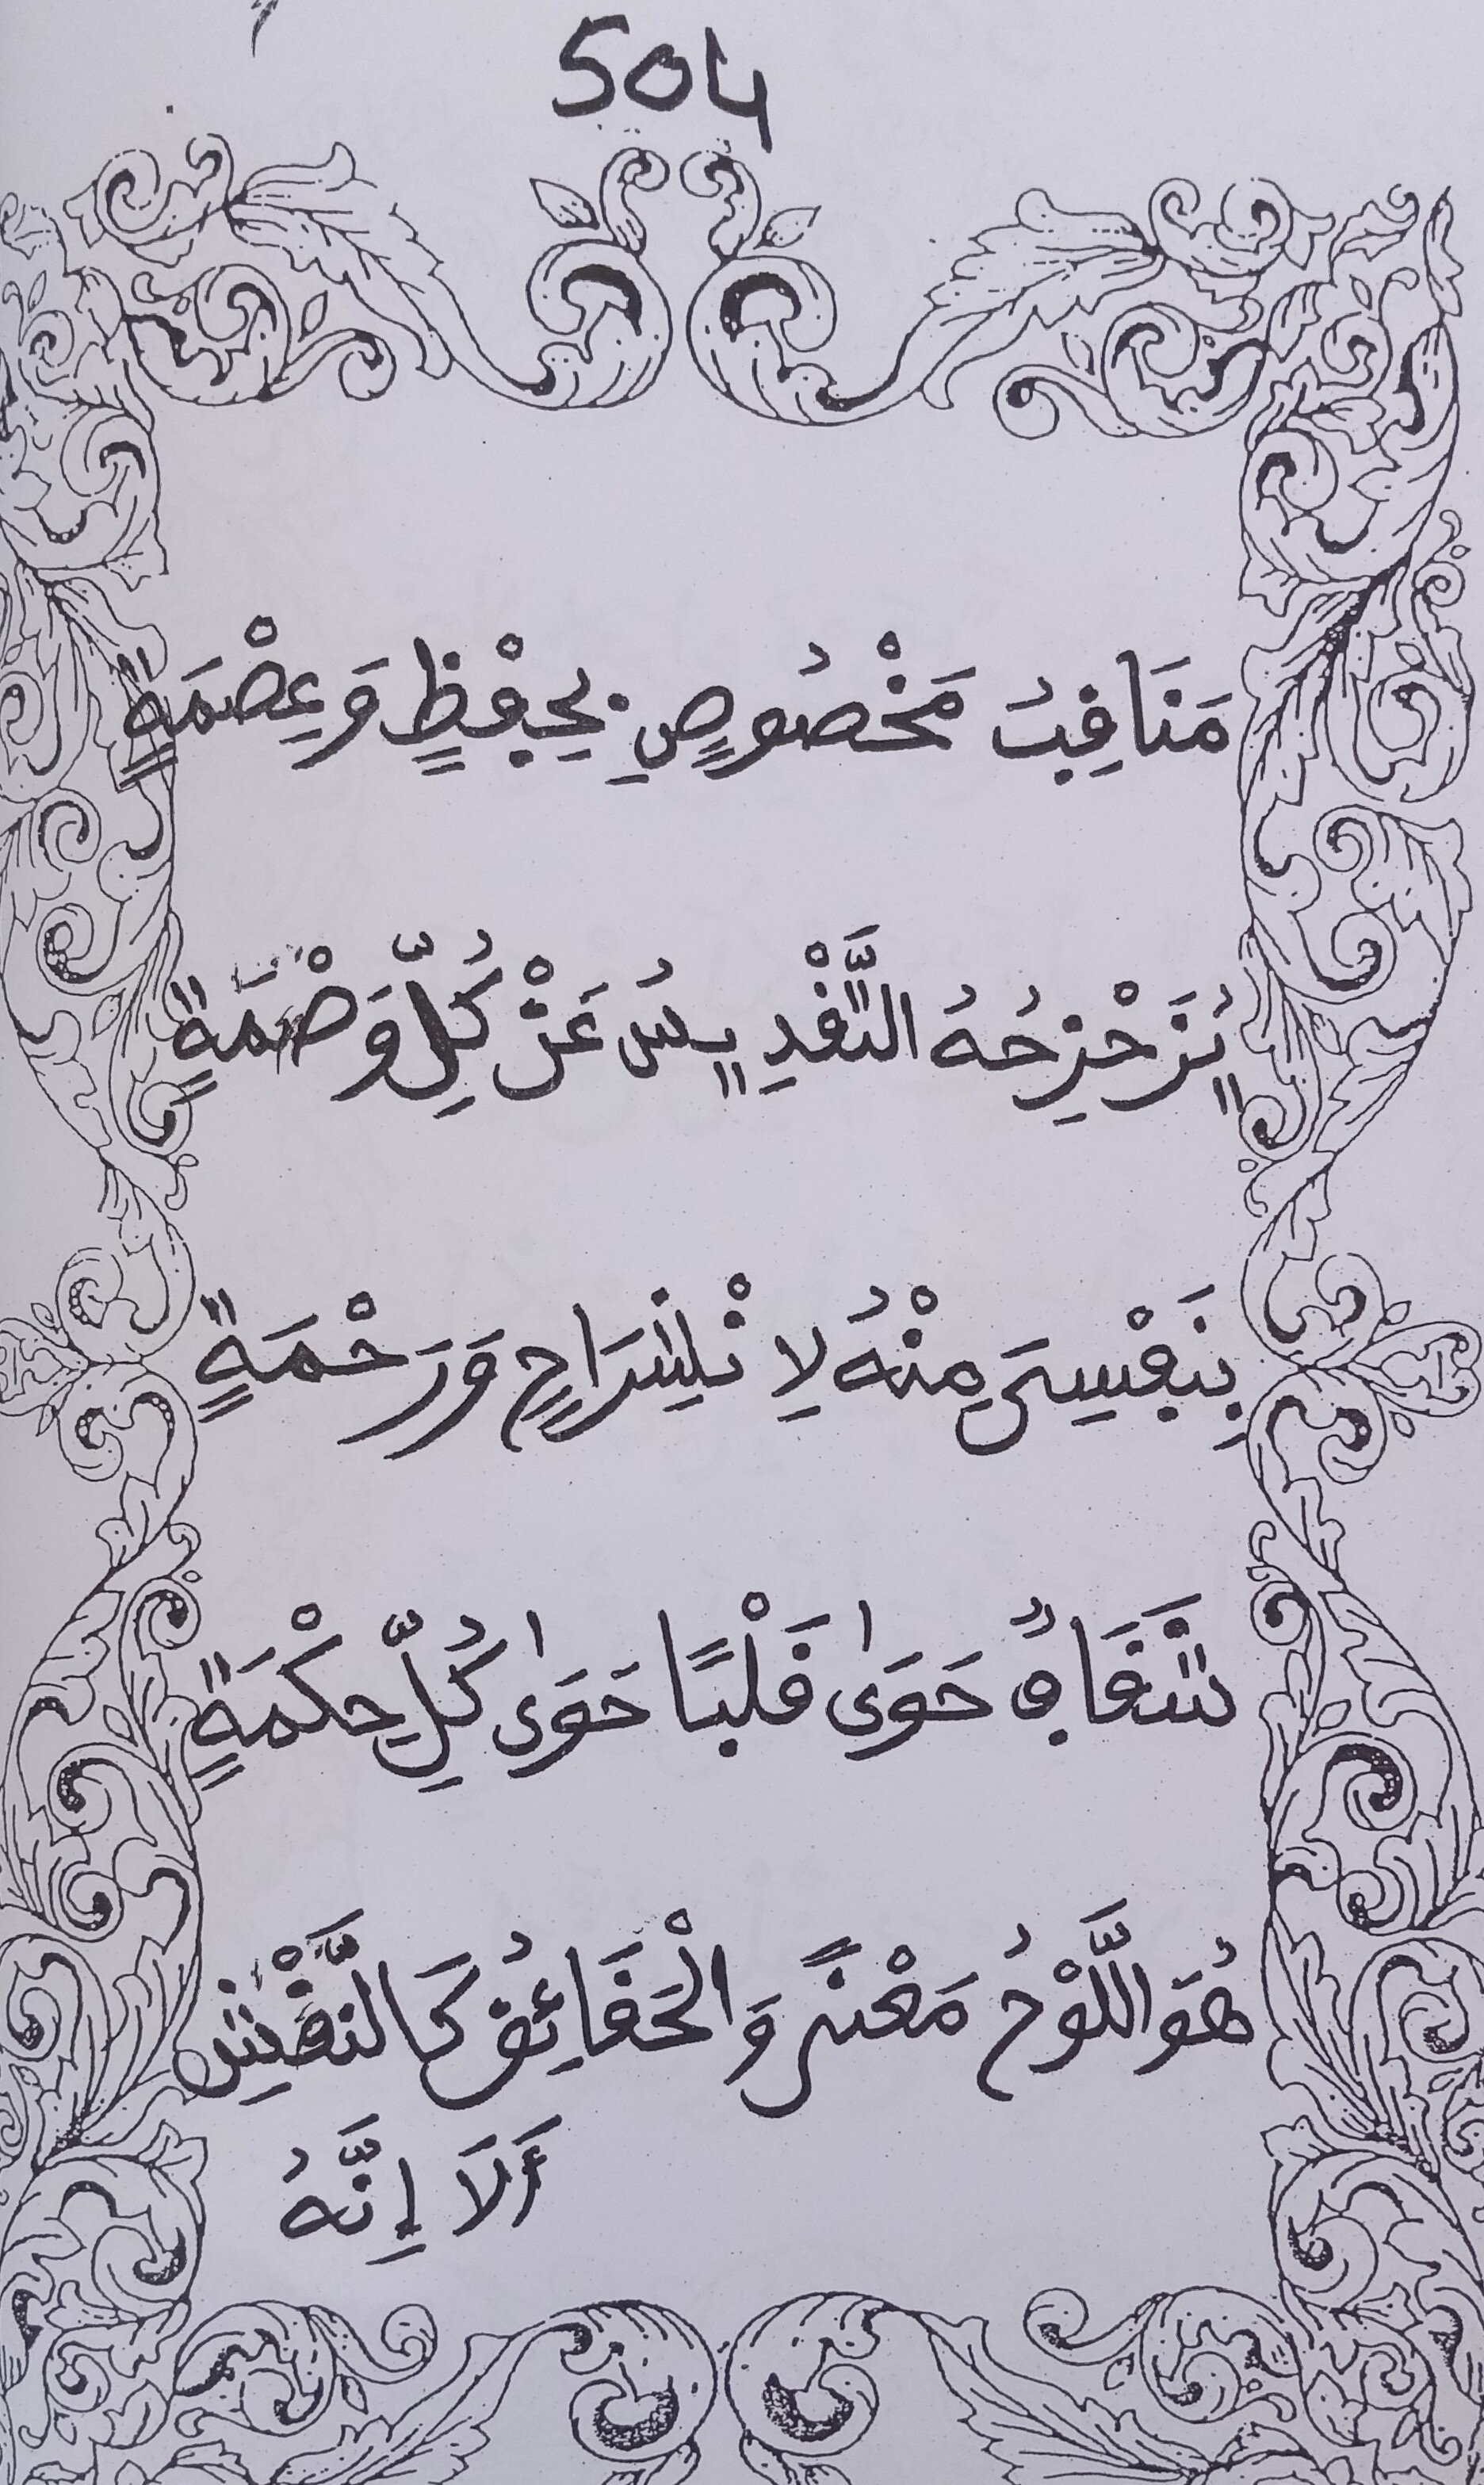 504
مَنَاقِبُ مَخْصُوصٍ بِحِفْظٍ وَعِصْمَةٍ
يُزَحْزِحُهُ التَّقْدِيسُ عَنْ كُلِّ وَصْمَةٍ
بِنَفْسِي مِنْهُ لِانْشِرَاحٍ وَرَحْمَةٍ
شَغَافٌ حَوَى قَلْبًا حَوَى كُلِّ حِكْمَةٍ
هُوَ اللَّوْحُ مَعْنًى وَالْحَقَائِقُ كَالنَّقْشِ
أَلَا إِنَّهُ